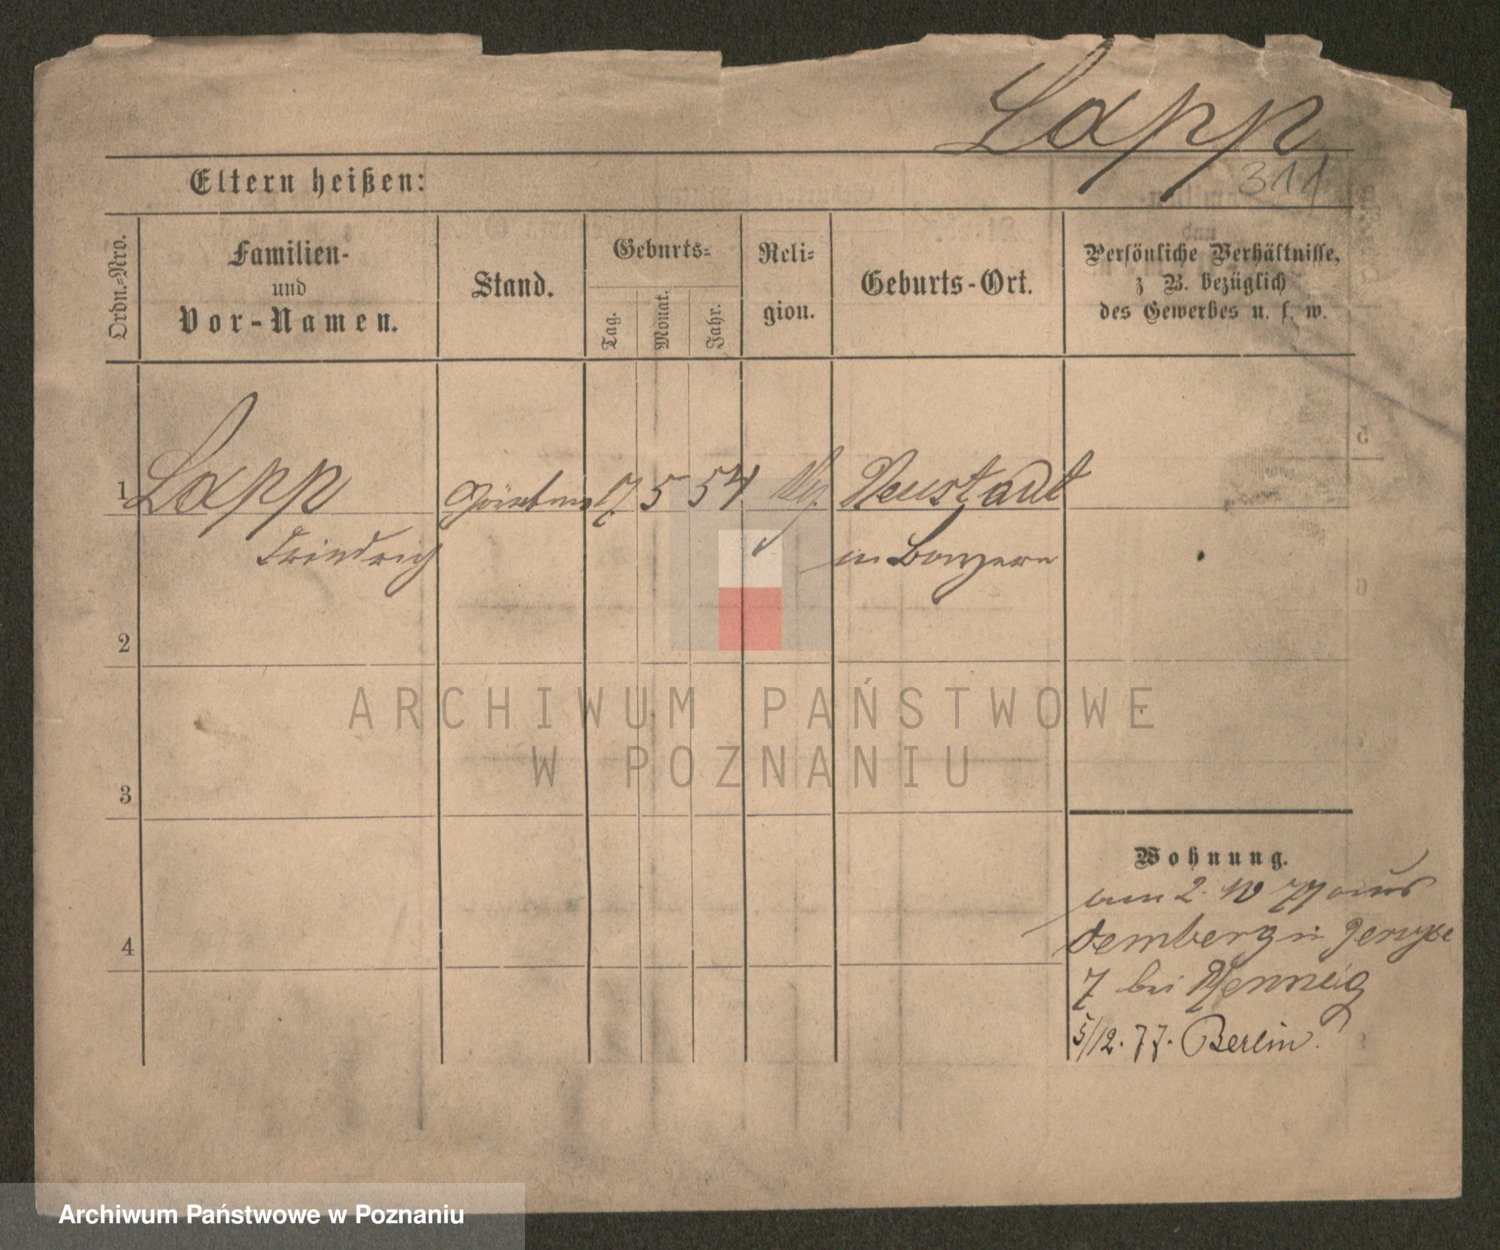 Lapp
311
Eltern heißen:
Ordn.-Nro.
Familien-
und
Vor-Namen.
Stand.
Geburts-
Tag.
Monat.
Jahr.
Reli-
gion.
Geburts-Ort.
Persönliche Verhältnisse,
z B. bezüglich
des Gewerbes u. s. w.
1 Lapp 17 5 54 Neustadt
Friedrich in
2
3
4
ARCHIWUM PAŃSTWOWE
W POZNANIU
Wohnung.
2. 10 77 aus
7 bei
5/12. 77. Berlin.
Archiwum Państwowe w Poznaniu